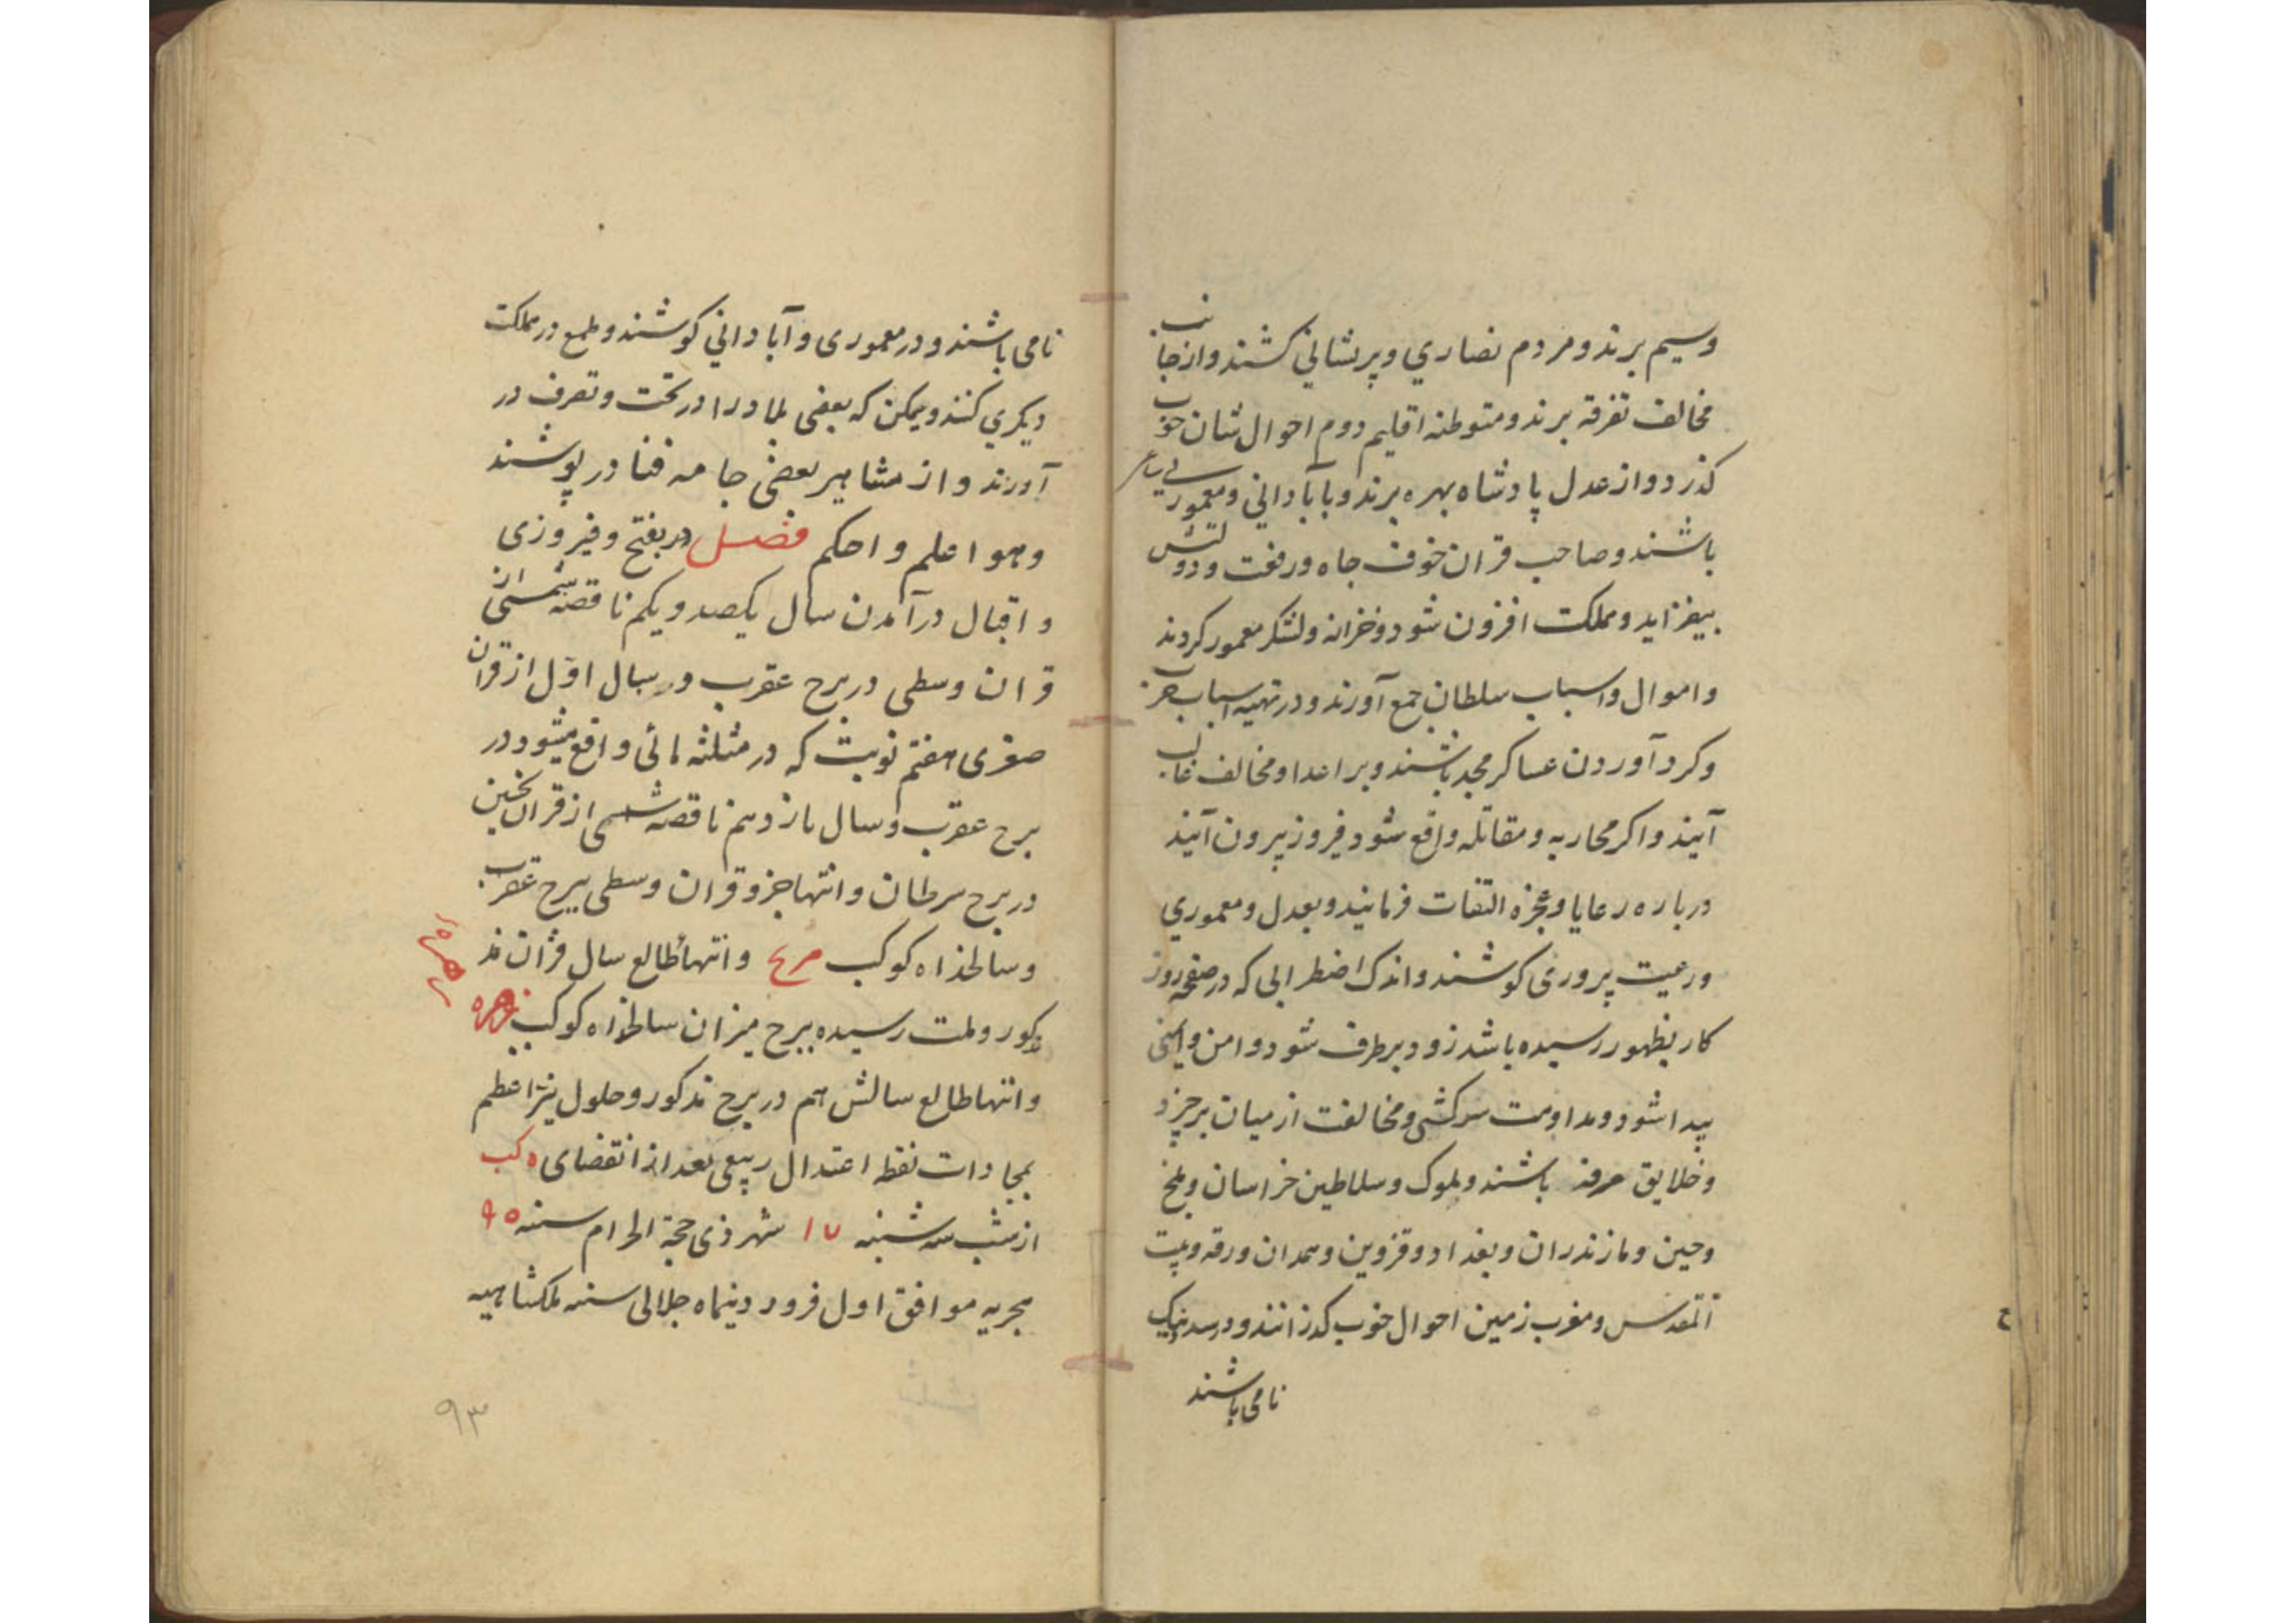 وسیم برند و مردم نصاری و پریشانی کشند و از جانب
مخالف تفرقه برند و متوطنه اقلیم دوم احوال شان خوب
کذرد و از عدل پادشاه بهره برند و با آبادانی و معموری
باشند و صاحب قران خوف جاه و رفعت و دولتش
بیفزاید و مملکت افزون شود و خزانه و لشکر معمور کردند
و اموال و اسباب سلطان جمع آورند و در تهیه اسباب حرب
و کرد آوردن عساکر مجد باشند و بر اعدا و مخالف غالب
آیند و اکر محاربه و مقاتله واقع شود فیروز بیرون آیند
درباره رعایا و عجزه التفات فرمایند و بعدل و معموری
و رعیت پروری کوشند و اندک اضطرابی که در صفحه روز
کار بظهور رسیده باشد زود برطرف شود و امن و ایمنی
پیدا شود و مداومت سرکشی و مخالفت از میان برخیزد
و خلایق مرفه باشند و ملوک و سلاطین خراسان و بلخ
و چین و مازندران و بغداد و قزوین و همدان و رقه و بیت
المقدس و مغرب زمین احوال خوب کذرانند و در صدد نیک
نامی باشند
نامی باشند و در معموری و آبادانی کوشند و طمع در مملکت
دیکری کنند و یمکن که بعضی بلاد را در تحت و تصرف در
آورند و از مشاهیر بعضی جامه فنا در پوشند
و هو اعلم و احکم فصل در بفتح و فیروزی
و اقبال درآمدن سال یکصد و یکم ناقصه شمسی از
قران وسطی در برج عقرب و سال اول از قران
صغری هفتم نوبت که در مثلثه مائی واقع میشود در
برج عقرب و سال یازدهم ناقصه شمسی از قران نحسین
در برج سرطان و انتها جزو قران وسطی ببرج عقرب
و سالخذاه کوکب مریخ و انتها طالع سال قران مذ
کور و ملت رسیده ببرج میزان سالخذاه کوکب زهره
و انتها طالع سالش هم در برج مذکور و حلول نیر اعظم
بمحاذات نقطه اعتدال ربیعی بعد از انقضای ه کب
از شب سه شنبه ١٧ شهر ذی حجة الحرام سنه ٩٥
هجریه موافق اول فروردینماه جلالی سنه ملکشاهیه
٩٣